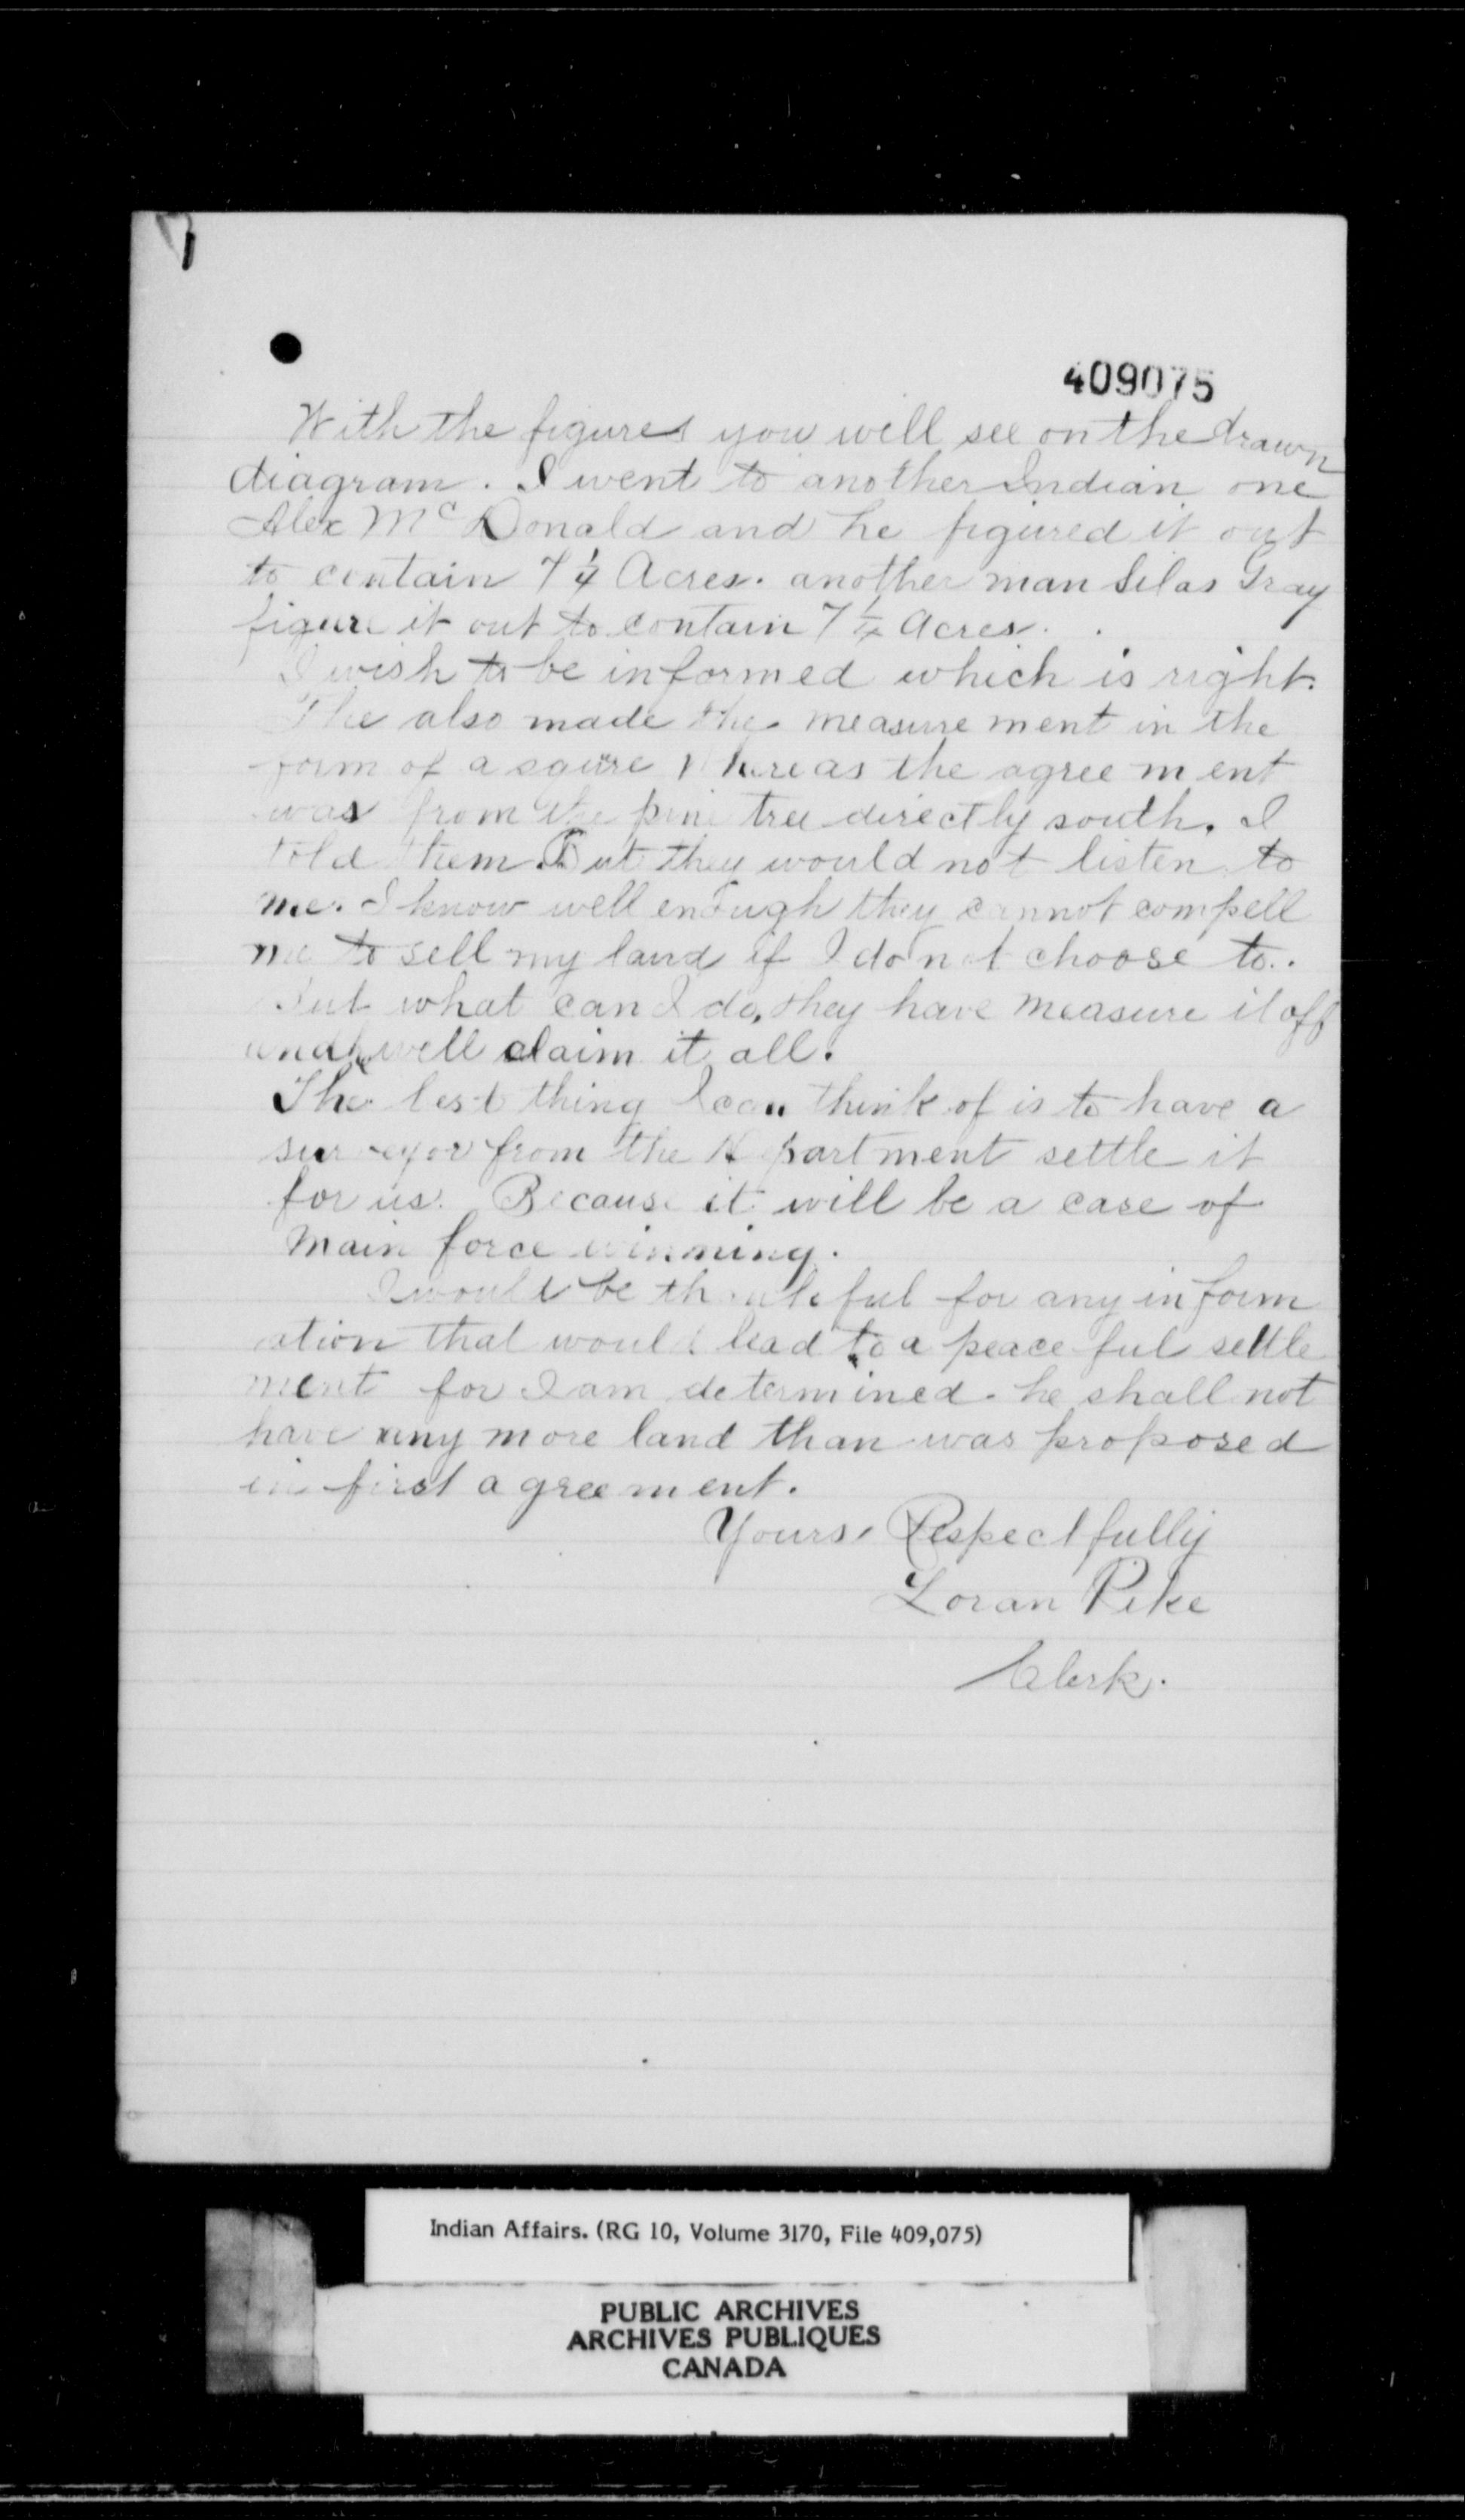 409075
With the figures you will see on the drawn
diagram. I went to another Indian one
Alex Mc Donald and he figured it out
to contain 7 1/4 Acres. another man Silas Gray
figure it out to contain 7 1/4 Acres.
I wish to be informed which is right.
The also made the measure ment in the
form of a saure Whereas the agree ment
was from the pine tree directly south. I
told them But they would not listen to
me. I know well enough they cannot compell
me to sell my land if I do not choose to.
But what can I do, they have measure it off
and will claim it all.
The best thing I can think of is to have a
surveyor from the Department settle it
for us. Because it will be a case of
main force winning.
I would be thankful for any inform
ation that would lead to a peace ful settle
ment for I am determined he shall not
have any more land than was proposed
in first agreement.
Yours Respectfully
Loran Pike
Clerk.
Indian Affairs. (RG 10, Volume 3170, File 409,075)
PUBLIC ARCHIVES
ARCHIVES PUBLIQUES
CANADA